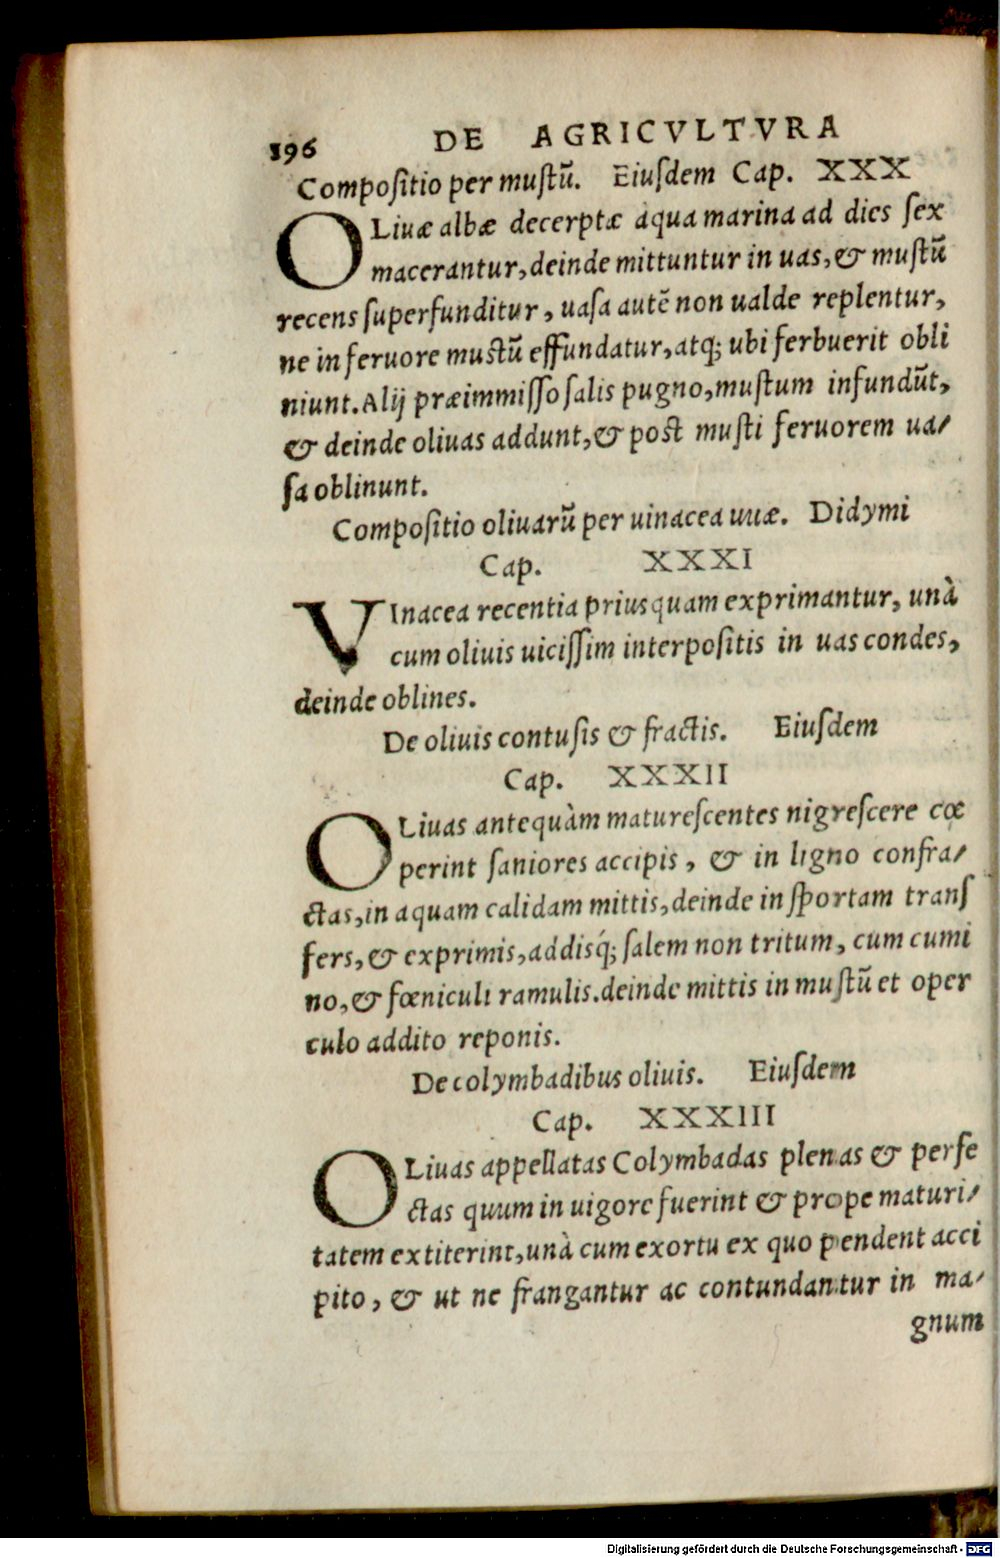 196 DE AGRICVLTVRA
Compoſitio per muſtũ. Eiuſdem Cap. XXX
OLiuæ albæ decerptæ aqua marina ad dies ſex
macerantur, deinde mittuntur in uas, & muſtũ
recens ſuperfunditur, uaſa autẽ non ualde replentur,
ne in feruore muſtũ effundatur, atq; ubi ferbuerit obli
niunt. Alij præimmiſſo ſalis pugno, muſtum infundũt,
& deinde oliuas addunt, & poſt muſti feruorem ua/
ſa oblinunt.
Compoſitio oliuarũ per uinacea uuæ. Didymi
Cap. XXXI
VInacea recentia priusquam exprimantur, unà
cum oliuis uiciſſim interpoſitis in uas condes,
deinde oblines.
De oliuis contuſis & fractis. Eiuſdem
Cap. XXXII
OLiuas antequàm matureſcentes nigreſcere cœ
perint ſaniores accipis, & in ligno confra/
ctas, in aquam calidam mittis, deinde in ſportam tranſ
fers, & exprimis, addisq́; ſalem non tritum, cum cumi
no, & fœniculi ramulis. deinde mittis in muſtũ et oper
culo addito reponis.
De colymbadibus oliuis. Eiuſdem
Cap. XXXIII
OLiuas appellatas Colymbadas plenas & perfe
ctas quum in uigore fuerint & prope maturi/
tatem extiterint, unà cum exortu ex quo pendent acci
pito, & ut ne frangantur ac contundantur in ma/
gnum
Digitalisierung gefördert durch die Deutsche Forschungsgemeinschaft - DFG